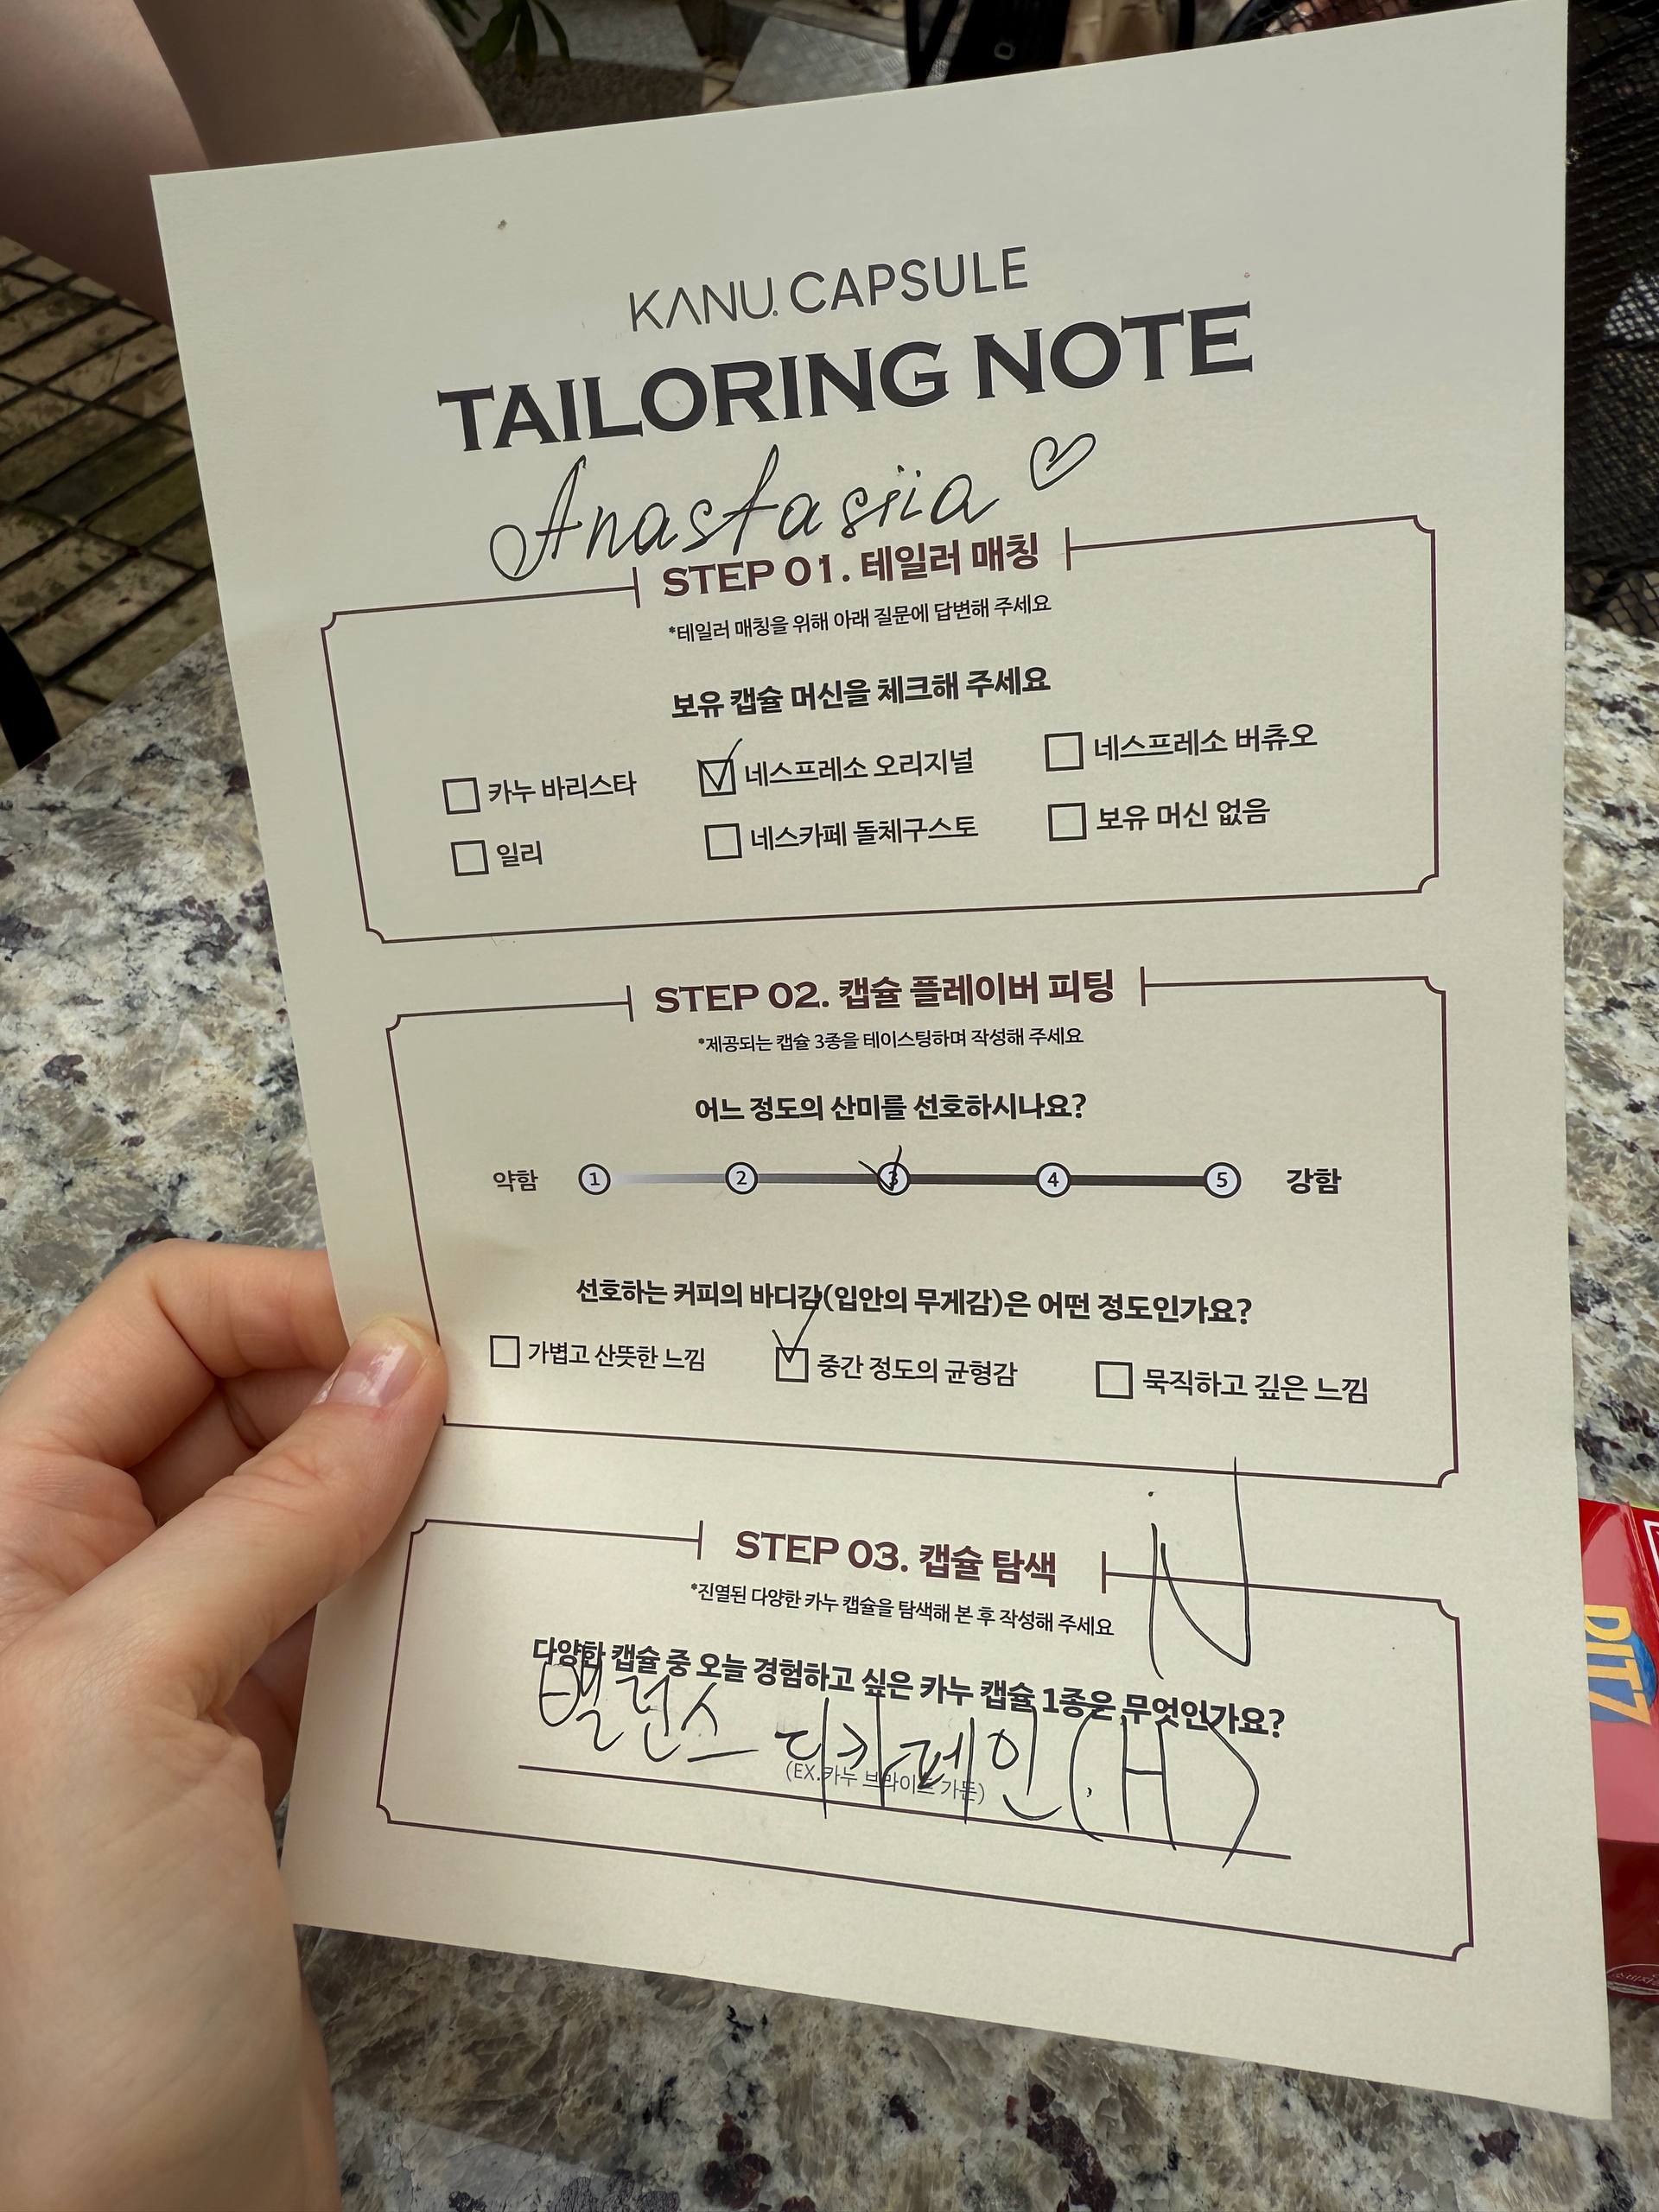 KANU CAPSULE
TAILORING NOTE
Anastasiia ♡
STEP 01. 테일러 매칭
*테일러 매칭을 위해 아래 질문에 답변해 주세요
보유 캡슐 머신을 체크해 주세요
카누 바리스타 네스프레소 오리지널 네스프레소 버츄오
일리 네스카페 돌체구스토 보유 머신 없음
STEP 02. 캡슐 플레이버 피팅
*제공되는 캡슐 3종을 테이스팅하며 작성해 주세요
어느 정도의 산미를 선호하시나요?
약함 1 2 3 4 5 강함
선호하는 커피의 바디감(입안의 무게감)은 어떤 정도인가요?
가볍고 산뜻한 느낌 중간 정도의 균형감 묵직하고 깊은 느낌
STEP 03. 캡슐 탐색
*진열된 다양한 카누 캡슐을 탐색해 본 후 작성해 주세요
다양한 캡슐 중 오늘 경험하고 싶은 카누 캡슐 1종은 무엇인가요?
밸런스 디카페인 (H)
(EX.카누 브라이트 가든)
RITZ